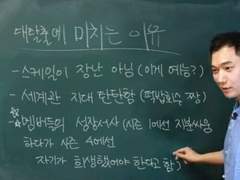 대탈출에 미치는 이유
- 스케일이 장난 아님 (이게 예능?)
- 세계관 지대 탄탄함 (떡밥회수 짱)
☆ 멤버들의 성장서사 (시즌 1에선 지분싸움
하다가 시즌 4에선
자기가 희생했어야 한다고 함)